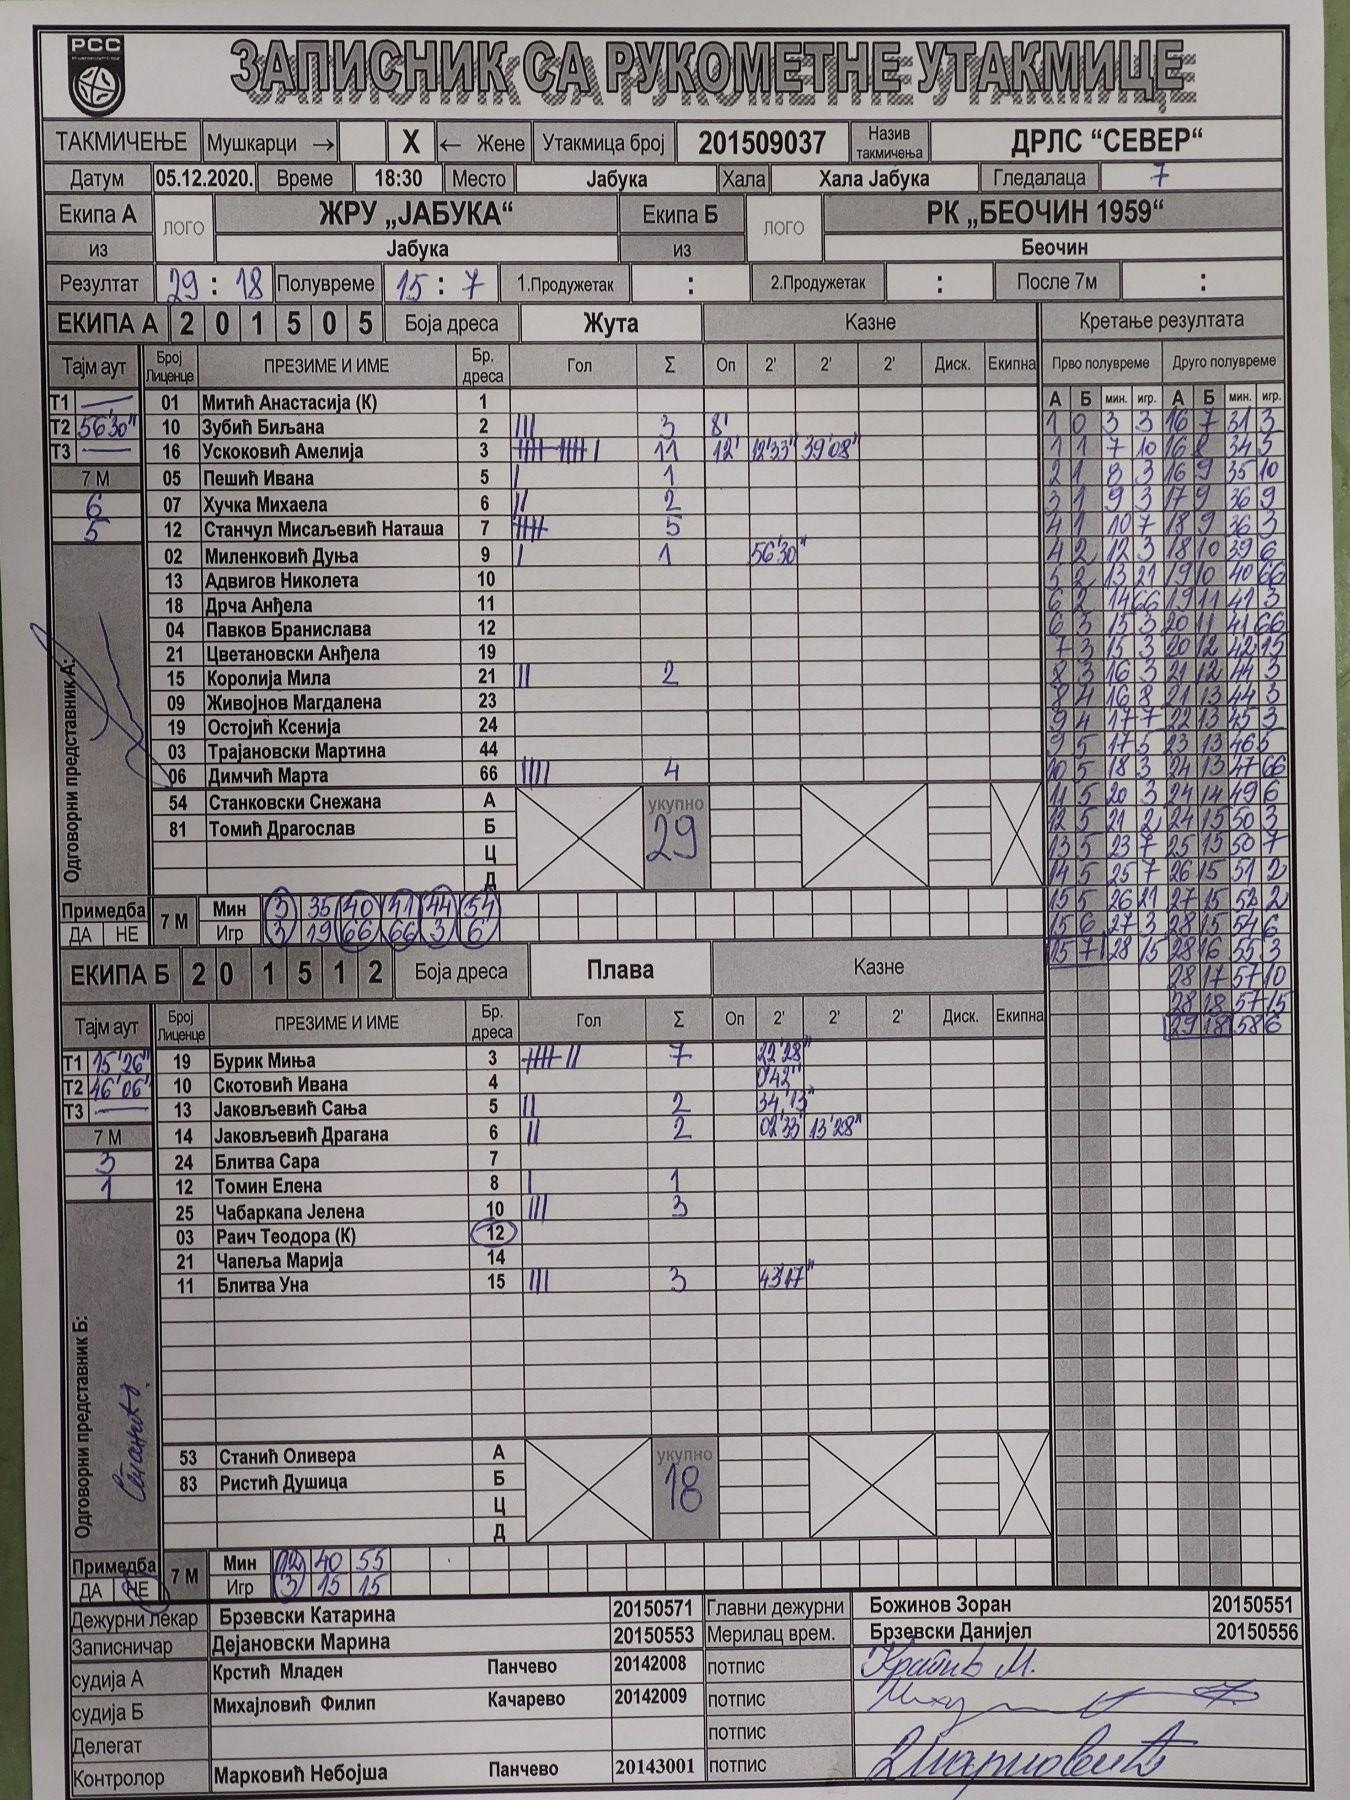 РСС
ЗАПИСНИК СА РУКОМЕТНЕ УТАКМИЦЕ
ТАКМИЧЕЊЕ Мушкарци → X ← Жене Утакмица број 201509037 Назив такмичења ДРЛС “СЕВЕР“
Датум 05.12.2020. Време 18:30 Место Јабука Хала Хала Јабука Гледалаца 7
Екипа А ЛОГО ЖРУ „ЈАБУКА“ Екипа Б ЛОГО РК „БЕОЧИН 1959“
из Јабука из Беочин
Резултат 29 : 18 Полувреме 15 : 7 1.Продужетак : 2.Продужетак : После 7м :
ЕКИПА А 2 0 1 5 0 5 Боја дреса Жута Казне Кретање резултата
Тајм аут Број Лиценце ПРЕЗИМЕ И ИМЕ Бр. дреса Гол Σ Оп 2' 2' 2' Диск. Екипна Прво полувреме Друго полувреме
А Б мин. игр. А Б мин. игр.
Т1 — 01 Митић Анастасија (К) 1
1 0 3 3 16 7 31 3
Т2 56'30" 10 Зубић Биљана 2 ||| 3 8'
1 1 7 10 16 8 34 3
Т3 — 16 Ускоковић Амелија 3 11 12' 12'33" 39'08"
2 1 8 3 16 9 35 10
7 М 05 Пешић Ивана 5 | 1
3 1 9 3 17 9 36 9
6 07 Хучка Михаела 6 || 2
4 1 10 7 18 9 36 3
5 12 Станчул Мисаљевић Наташа 7 5
4 2 12 3 18 10 39 6
02 Миленковић Дуња 9 | 1 56'30"
5 2 13 21 19 10 40 66
13 Адвигов Николета 10
6 2 14 66 19 11 41 3
18 Дрча Анђела 11
6 3 15 3 20 11 41 66
04 Павков Бранислава 12
7 3 15 3 20 12 42 15
21 Цветановски Анђела 19
8 3 16 3 21 12 44 3
15 Королија Мила 21 || 2
8 4 16 8 21 13 44 3
09 Живојнов Магдалена 23
9 4 17 7 22 13 45 3
19 Остојић Ксенија 24
9 5 17 5 23 13 46 5
03 Трајановски Мартина 44
10 5 18 3 24 13 47 66
06 Димчић Марта 66 |||| 4
11 5 20 3 24 14 49 6
54 Станковски Снежана А укупно 29
12 5 21 2 24 15 50 3
81 Томић Драгослав Б
13 5 23 7 25 15 50 7
Ц
14 5 25 7 26 15 51 2
Д
Одговорни представник А:
15 5 26 21 27 15 52 2
Примедба 7 М Мин 3 35 40 41 44 54
15 6 27 3 28 15 54 6
ДА НЕ Игр 3 19 66 66 3 6
15 7 28 15 28 16 55 3
ЕКИПА Б 2 0 1 5 1 2 Боја дреса Плава Казне
28 17 57 10
28 18 57 15
29 18 58 6
Тајм аут Број Лиценце ПРЕЗИМЕ И ИМЕ Бр. дреса Гол Σ Оп 2' 2' 2' Диск. Екипна
Т1 15'26" 19 Бурик Миња 3 7 22'28"
Т2 46'06" 10 Скотовић Ивана 4 0'42"
Т3 — 13 Јаковљевић Сања 5 || 2 34'13"
7 М 14 Јаковљевић Драгана 6 || 2 02'33" 13'28"
3 24 Блитва Сара 7
1 12 Томин Елена 8 | 1
25 Чабаркапа Јелена 10 ||| 3
03 Раич Теодора (К) 12
21 Чапеља Марија 14
11 Блитва Уна 15 ||| 3 43'17"
Одговорни представник Б:
53 Станић Оливера А укупно 18
83 Ристић Душица Б
Ц
Д
Примедба 7 М Мин 12 40 55
ДА НЕ Игр 3 15 15
Дежурни лекар Брзевски Катарина 20150571 Главни дежурни Божинов Зоран 20150551
Записничар Дејановски Марина 20150553 Мерилац врем. Брзевски Данијел 20150556
судија А Крстић Младен Панчево 20142008 потпис
судија Б Михајловић Филип Качарево 20142009 потпис
Делегат потпис
Контролор Марковић Небојша Панчево 20143001 потпис